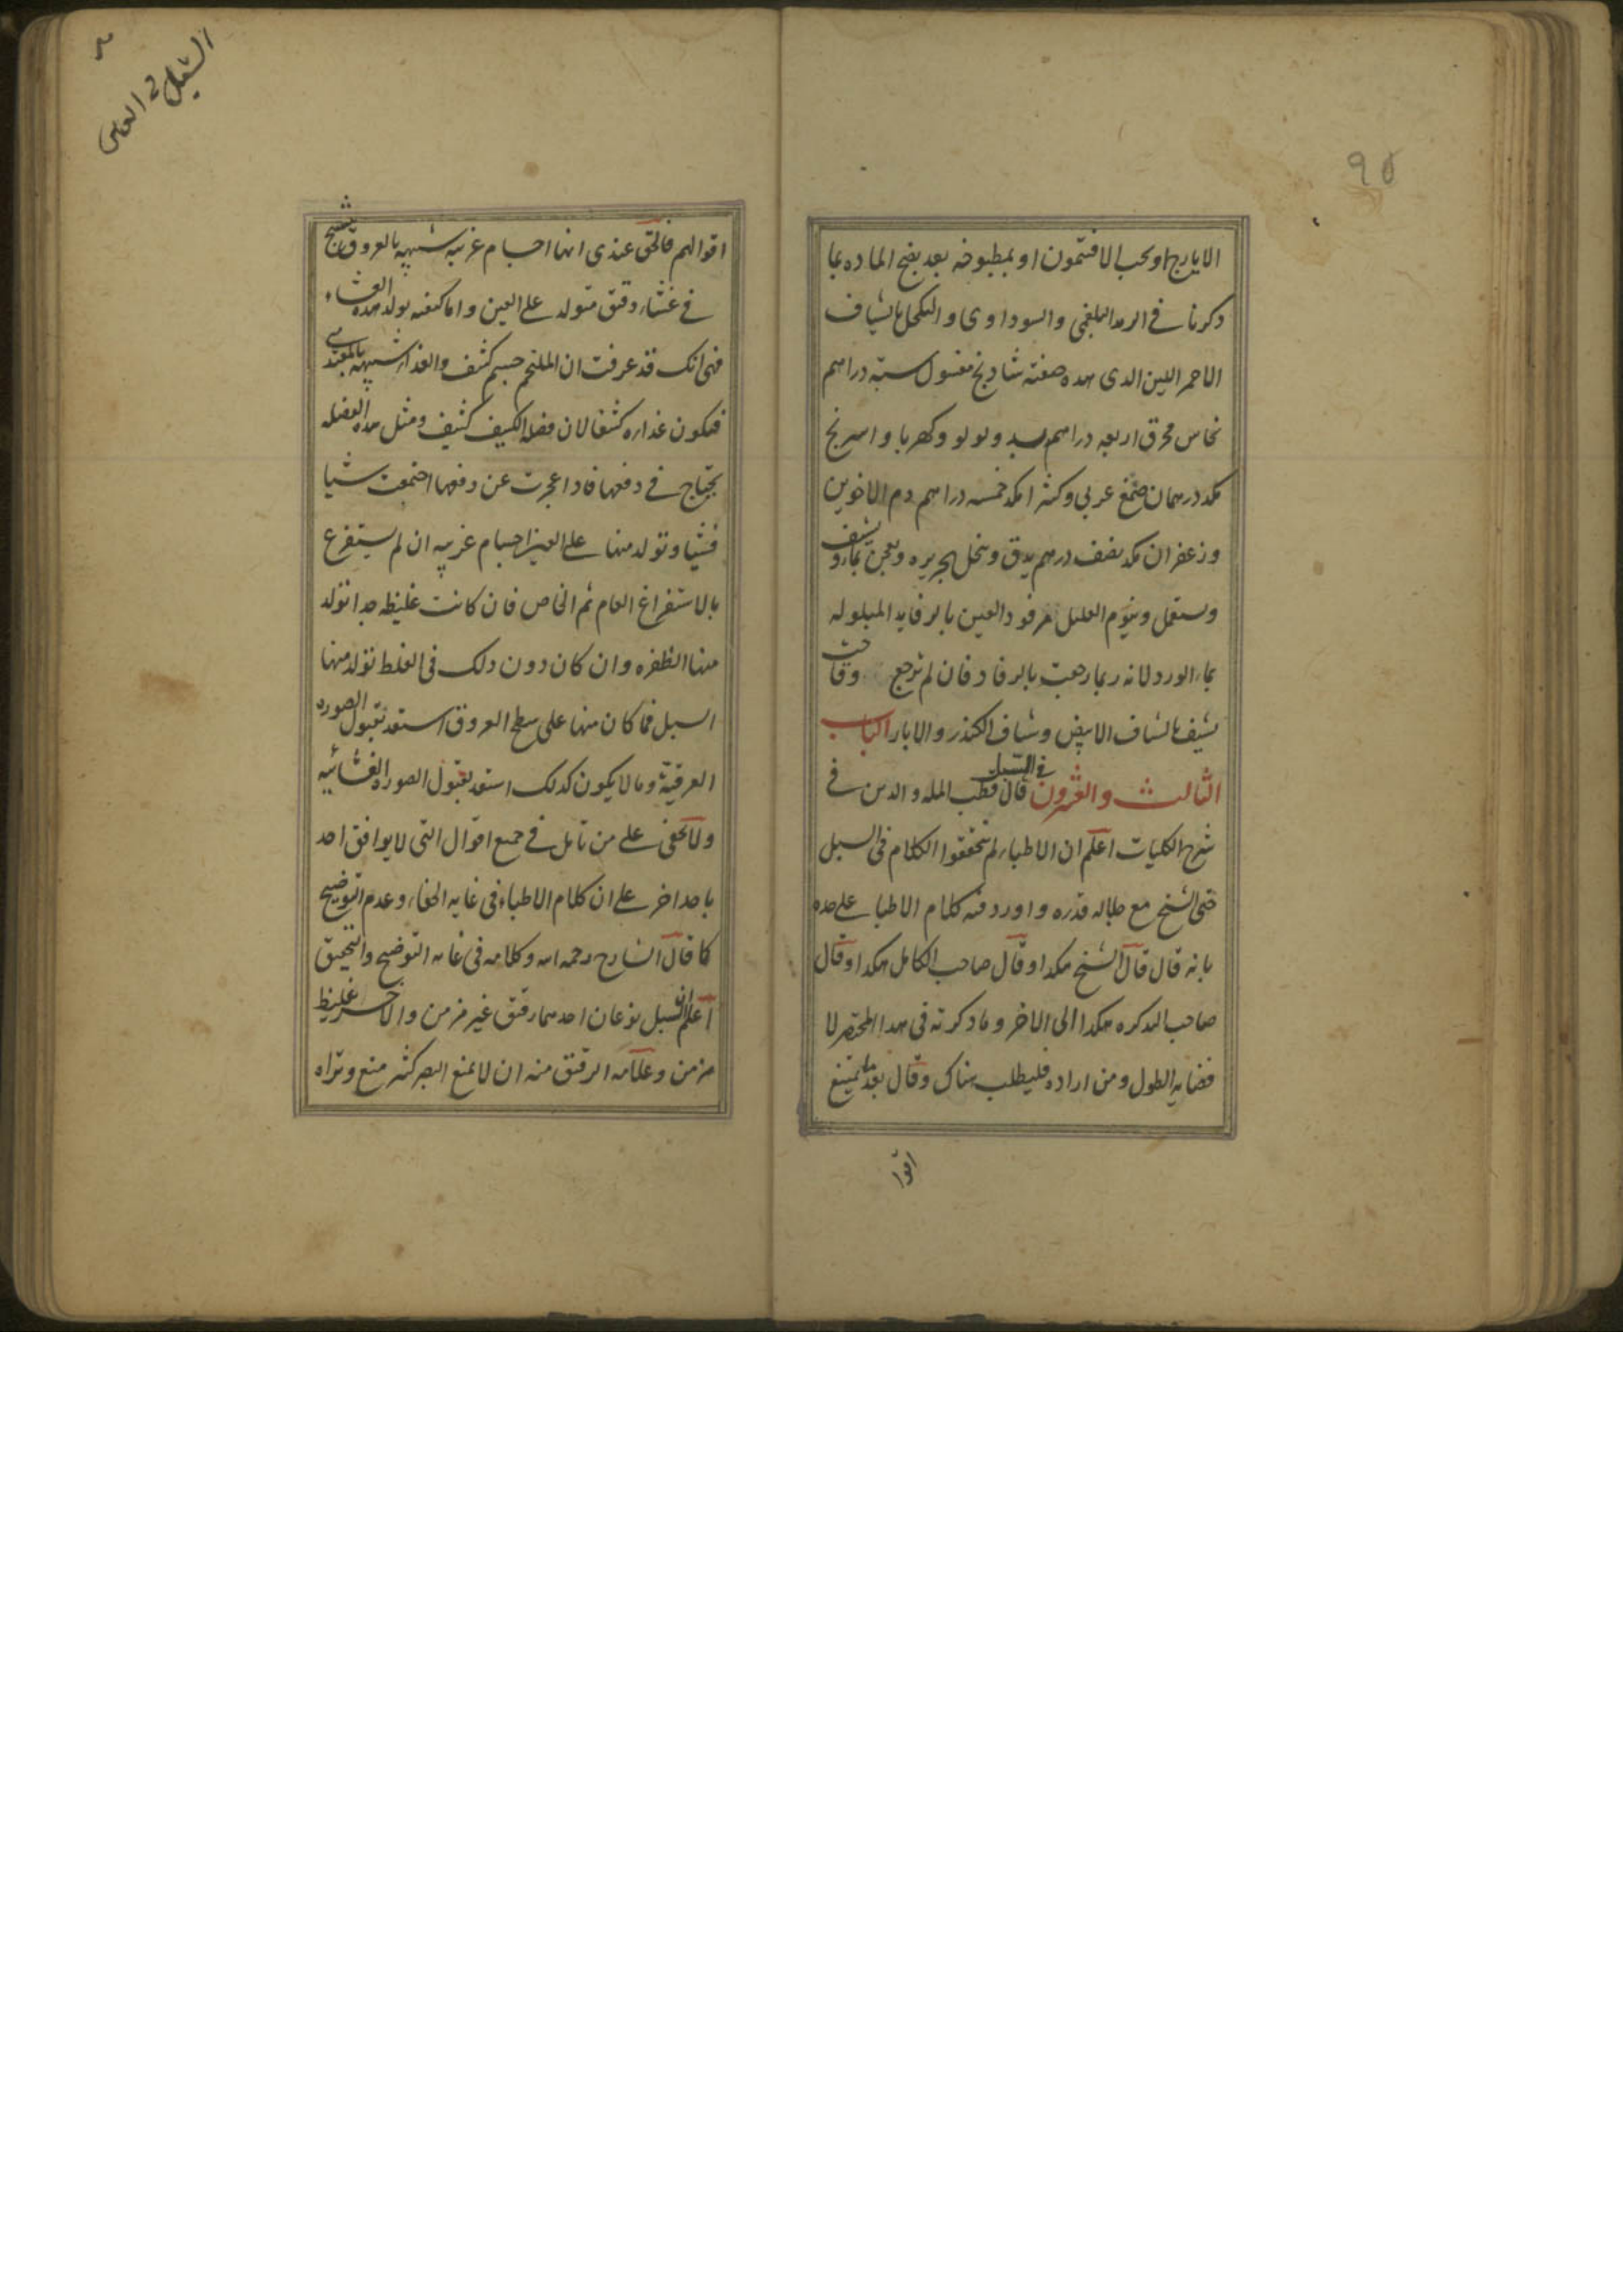 ٩٥
الايارج او بحب الافتيمون او بمطبوخه بعد نضج الماده بما
ذكرنا في الرمد البلغمي والسوداوى والتكحل بالشياف
الاحمر اللين الذى هذه صفته شادنج مغسول ستة دراهم
نحاس محرق اربعه دراهم بسد ولولو وكهربا واسرنج
مكد درهمان صمغ عربي وكثيرا مكد خمسه دراهم دم الاخوين
وزعفران مكد نصف درهم يدق وينخل بحريره ويعجن بماء و يشيف
ويستعمل وينوم العليل مرفود العين بالرفايد المبلوله
بماء الورد لانه ربما رجعت بالرفاد فان لم ترجع وقاحت
يشيف بالشياف الابيض وشياف الكندر والابار الباب
الثالث والعشرون في السبل قال قطب المله والدين في
شرح الكليات اعلم ان الاطباء لم يحققوا الكلام في السبل
حتى الشيخ مع جلاله قدره واورد فيه كلام الاطبا على حده
بانه قال قال الشيخ هكذا وقال صاحب الكامل هكذا وقال
صاحب التذكره هكذا الى الاخر وما ذكرته في هذا المختصر لا
فضايه الطول ومن اراده فليطلب هناك وقال بعد ما تمنع
اقوا
السبل في العين
اقوالهم فالحق عندى انها اجسام غريبه شبيهه بالعروق تنتسج
في غشاء رقيق متولد على العين واما كيفيه تولد هذه الغشاء
فهى انك قد عرفت ان الملتحم جسم كثيف والغذا شبيهه بالمغتذى
فيكون غذاوه كثيفا لان فضل الكثيف كثيف ومثل هذه الفضله
يحتاج في دفعها فاذا عجزت عن دفعها اجتمعت شيا
فشيا وتولد منها على العين اجسام غريبه ان لم يستفرغ
بالاستفراغ العام ثم الخاص فان كانت غليظه جدا تولد
منها الظفره وان كان دون ذلك في الغلظ تولد منها
السبل فما كان منها على سطح العروق استعد لقبول الصوره
العرقية وما لا يكون كذلك استعد لقبول الصوره الغشائيه
ولا يخفى على من تامل في جميع اقوال التى لا يوافق احد
باحد اخر على ان كلام الاطباء في غايه الخفاء وعدم التوضيح
كما قال الشارح رحمه الله وكلامه في غايه التوضيح والتحقيق
اعلم ان السبل نوعان احدهما رقيق غير مزمن والاخر غليظ
مزمن وعلامه الرقيق منه ان لا يمنع البصر كثير منع وتراه